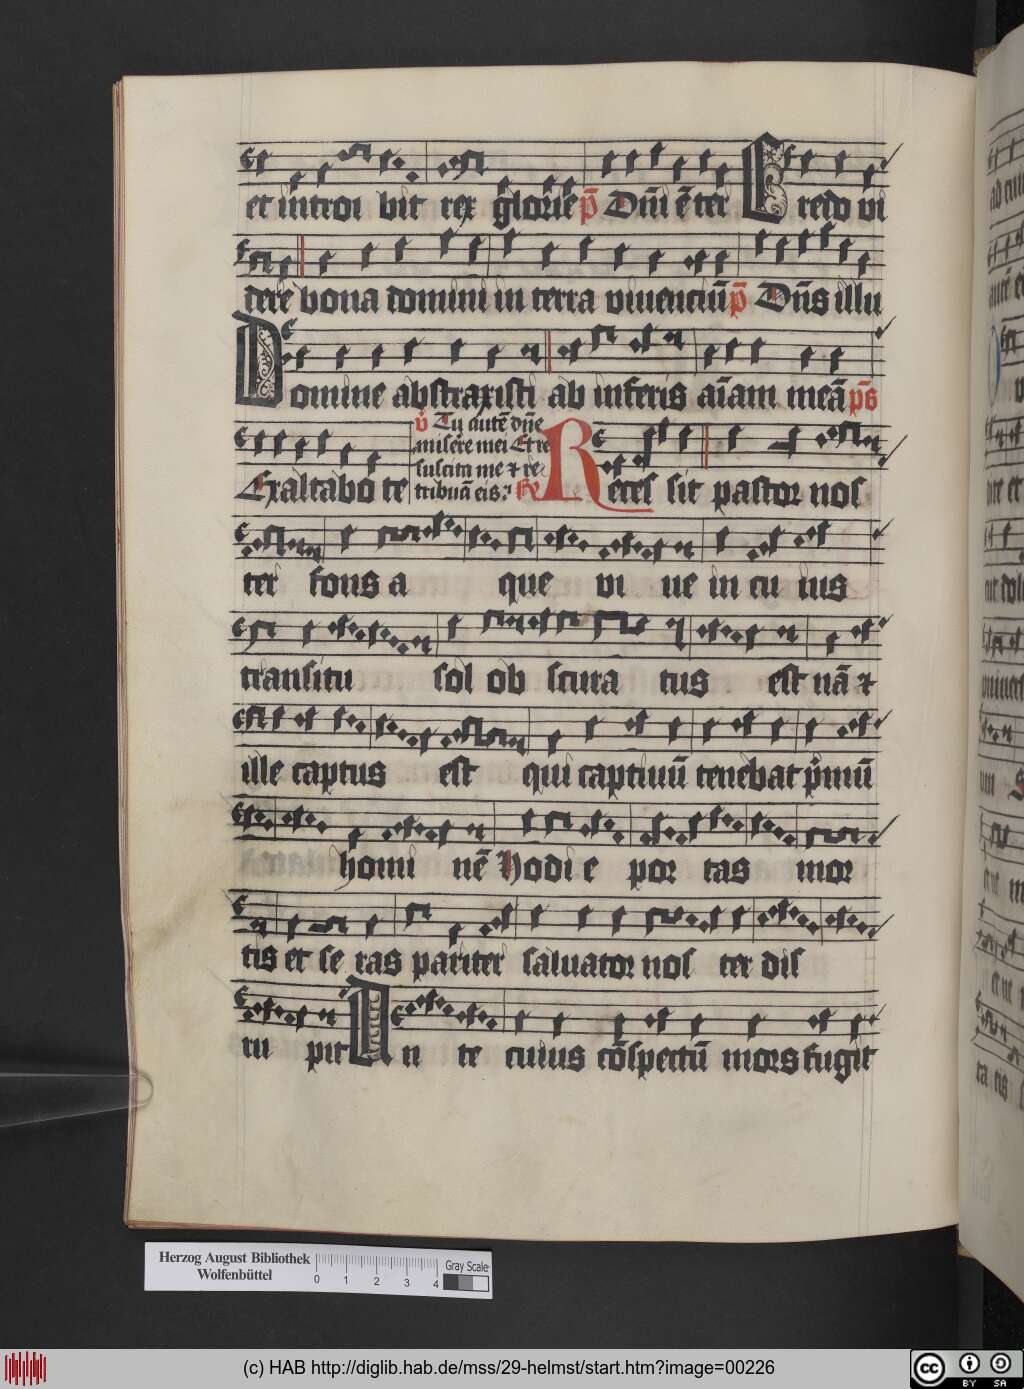 et introi bit rex glorie p̄ Dn̄i ē ter Credo vi
dere bona domini in terra viuenciū p̄ Dn̄s illu
Domine abstraxisti ab inferis aīam meā pš
v̊ Tu autē dn̄e
miserere mei Et re
suscita me ⁊ re
Exaltabo te tribuā eis. Recessit pastor nos
ter fons a que vi ue in cu ius
transitu sol ob scura tus est nā ⁊
ille captus est qui captiuū tenebat p̓mū
homi nē Hodi e por tas mor
tis et se ras pariter saluator nos ter dis
ru pit An te cuius cōspectū mors fugit
ra eis
Herzog August Bibliothek
Wolfenbüttel
0 1 2 3 4
Gray Scale
(c) HAB http://diglib.hab.de/mss/29-helmst/start.htm?image=00226
cc BY SA